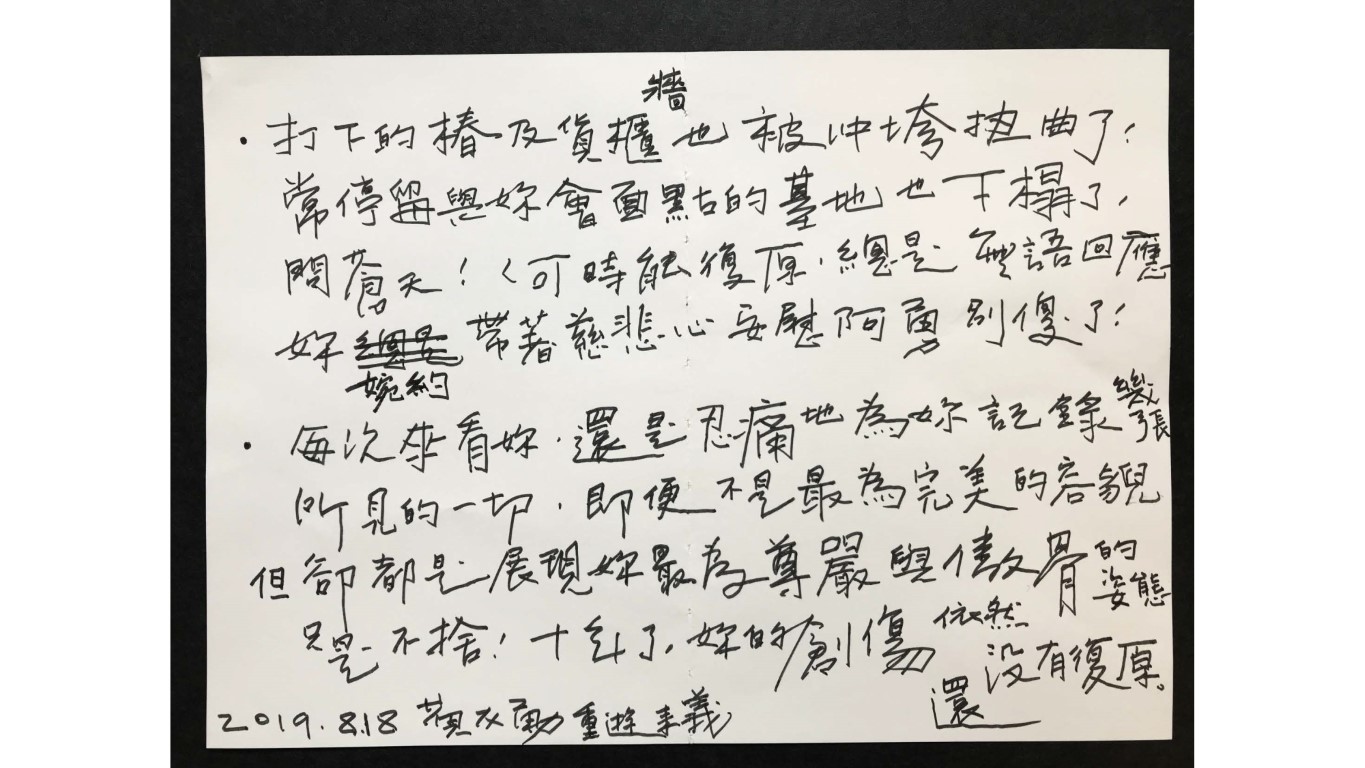 牆
·打下的樁及貨櫃也被冲垮扭曲了!
常停留與妳會面點的基地也下榻了,
問蒼天!何時能復原,總是無語回應
妳總是帶著慈悲心安慰阿勇別傻了!
婉約
·每次來看妳,還是忍痛地為妳記錄幾張
所見的一切,即便不是最為完美的容貌
但卻都是展現妳最為尊嚴與傲骨的姿態
只是不捨!十年了,妳的創傷依然沒有復原。
還
2019.8.18 友勇重遊來義